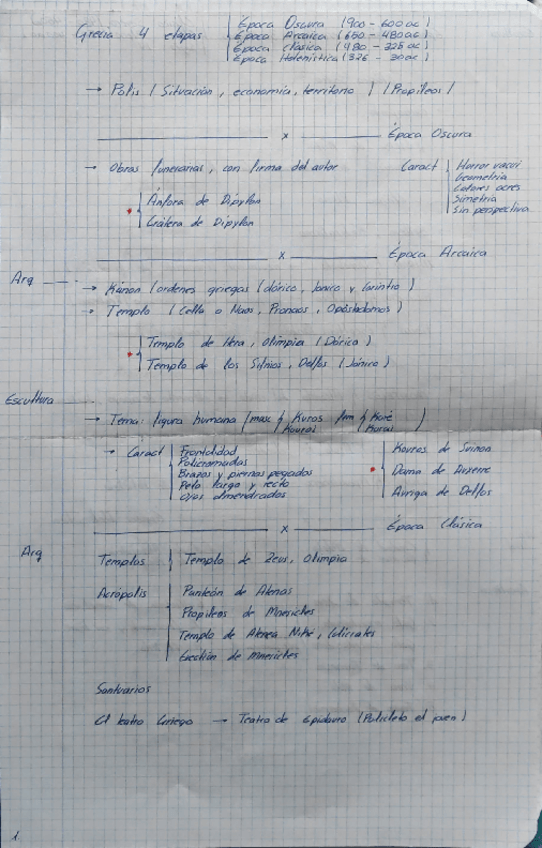 Grecia 4 etapas
Época Oscura (900 - 600 ac)
Época Arcaica (650 - 480 ac)
Época clásica (480 - 325 ac)
Época Helenística (325 - 30 ac)
→ Polis (Situación, economía, territorio) (Propileos)
x Época Oscura
→ Obras funerarias, con firma del autor
Ánfora de Dipylon
Crátera de Dipylon
Caract
Horror vacui
Geometría
Colores ocres
Simetría
Sin perspectiva
x Época Arcaica
Arq
→ Kánon (ordenes griegos (dórico, Jónico y Corintio)
→ Templo (Cella o Naos, Pronaos, Opistodomos)
Templo de Hera, Olimpia (Dórico)
Templo de los Sifnios, Delfos (Jónico)
Escultura
→ Tema: figura humana (masc Kuros fem Koré)
Kouroi Korai
→ Caract
Frontalidad
Policromadas
Brazos y piernas pegados
Pelo largo y recto
Ojos almendrados
Kouros de Sunion
Dama de Auxerre
Auriga de Delfos
x Época Clásica
Arq
Templos Templo de Zeus, Olimpia
Acrópolis Partenón de Atenas
Propileos de Mnesicles
Templo de Atenea Niké, Calícrates
Erection de Mnesicles
Santuarios
El teatro Griego → Teatro de Epidauro (Policleto el joven)
1